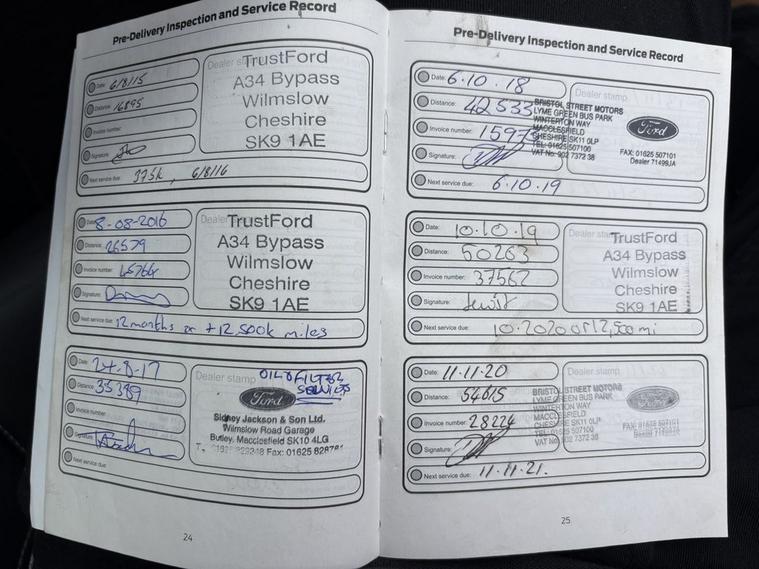 Pre-Delivery Inspection and Service Record
Date: 6/8/15
Distance: 16895
Invoice number:
Signature:
Next service due: 375k, 6/8/16
TrustFord
A34 Bypass
Wilmslow
Cheshire
SK9 1AE
Date: 8-08-2016
Distance: 26579
Invoice number: 45764
Signature:
Next service due: 12 months or +12,500k miles
TrustFord
A34 Bypass
Wilmslow
Cheshire
SK9 1AE
Date: 24.8.17
Distance: 35389
Invoice number:
Signature:
Next service due:
Dealer stamp
OIL & FILTER
SERVICES
Ford
Sidney Jackson & Son Ltd.
Wilmslow Road Garage
Butley, Macclesfield SK10 4LG
Fax: 01625
24
Pre-Delivery Inspection and Service Record
Date: 6.10.18
Distance: 42533
Invoice number:
Signature:
Next service due: 6.10.19
Dealer stamp
BRISTOL STREET MOTORS
LYME GREEN BUS PARK
WINTERTON WAY
MACCLESFIELD
CHESHIRE SK11 0LP
TEL: 01625 507100
VAT No. 902 7372 38
Ford
FAX: 01625 507101
Dealer 71499JA
Date: 10.10.19
Distance: 50263
Invoice number: 37562
Signature:
Next service due: 10.2020 or 12,500 mi
TrustFord
A34 Bypass
Wilmslow
Cheshire
SK9 1AE
Date: 11.11.20
Distance: 54615
Invoice number: 28224
Signature:
Next service due: 11.11.21.
Dealer stamp
BRISTOL STREET MOTORS
LYME GREEN BUS PARK
WINTERTON WAY
MACCLESFIELD
CHESHIRE SK11 0LP
TEL: 01625 507100
VAT No. 902 7372 38
Ford
FAX: 01625 507101
25